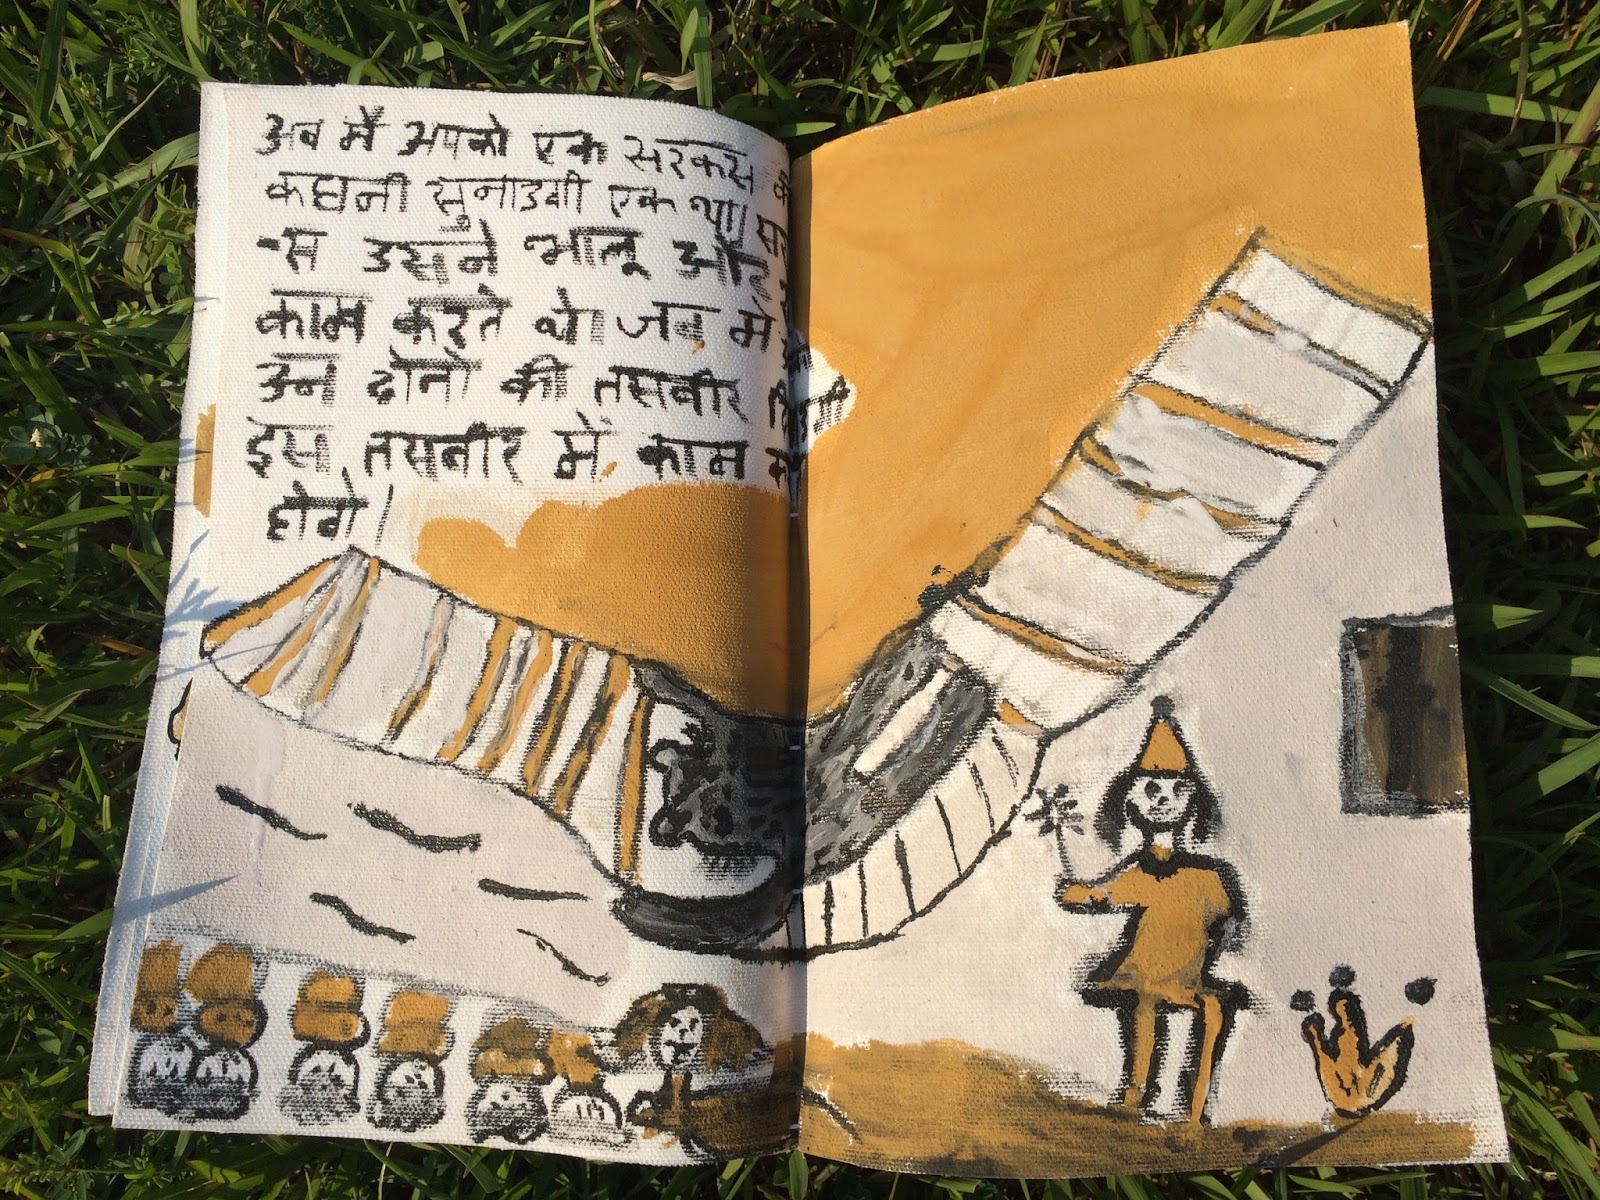 अब मैं अपको एक सरकस की
कहानी सुनाउगी एक था। सर
-स उसने भालू और
काम करते थे। जब मे
उन दोनो की तसवीर
इस तसवीर में काम
होगे।